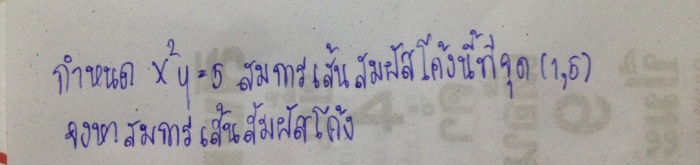 กำหนด x²y=5 สมการเส้นสัมผัสโค้งนี้ที่จุด (1,5)
จงหาสมการเส้นสัมผัสโค้ง